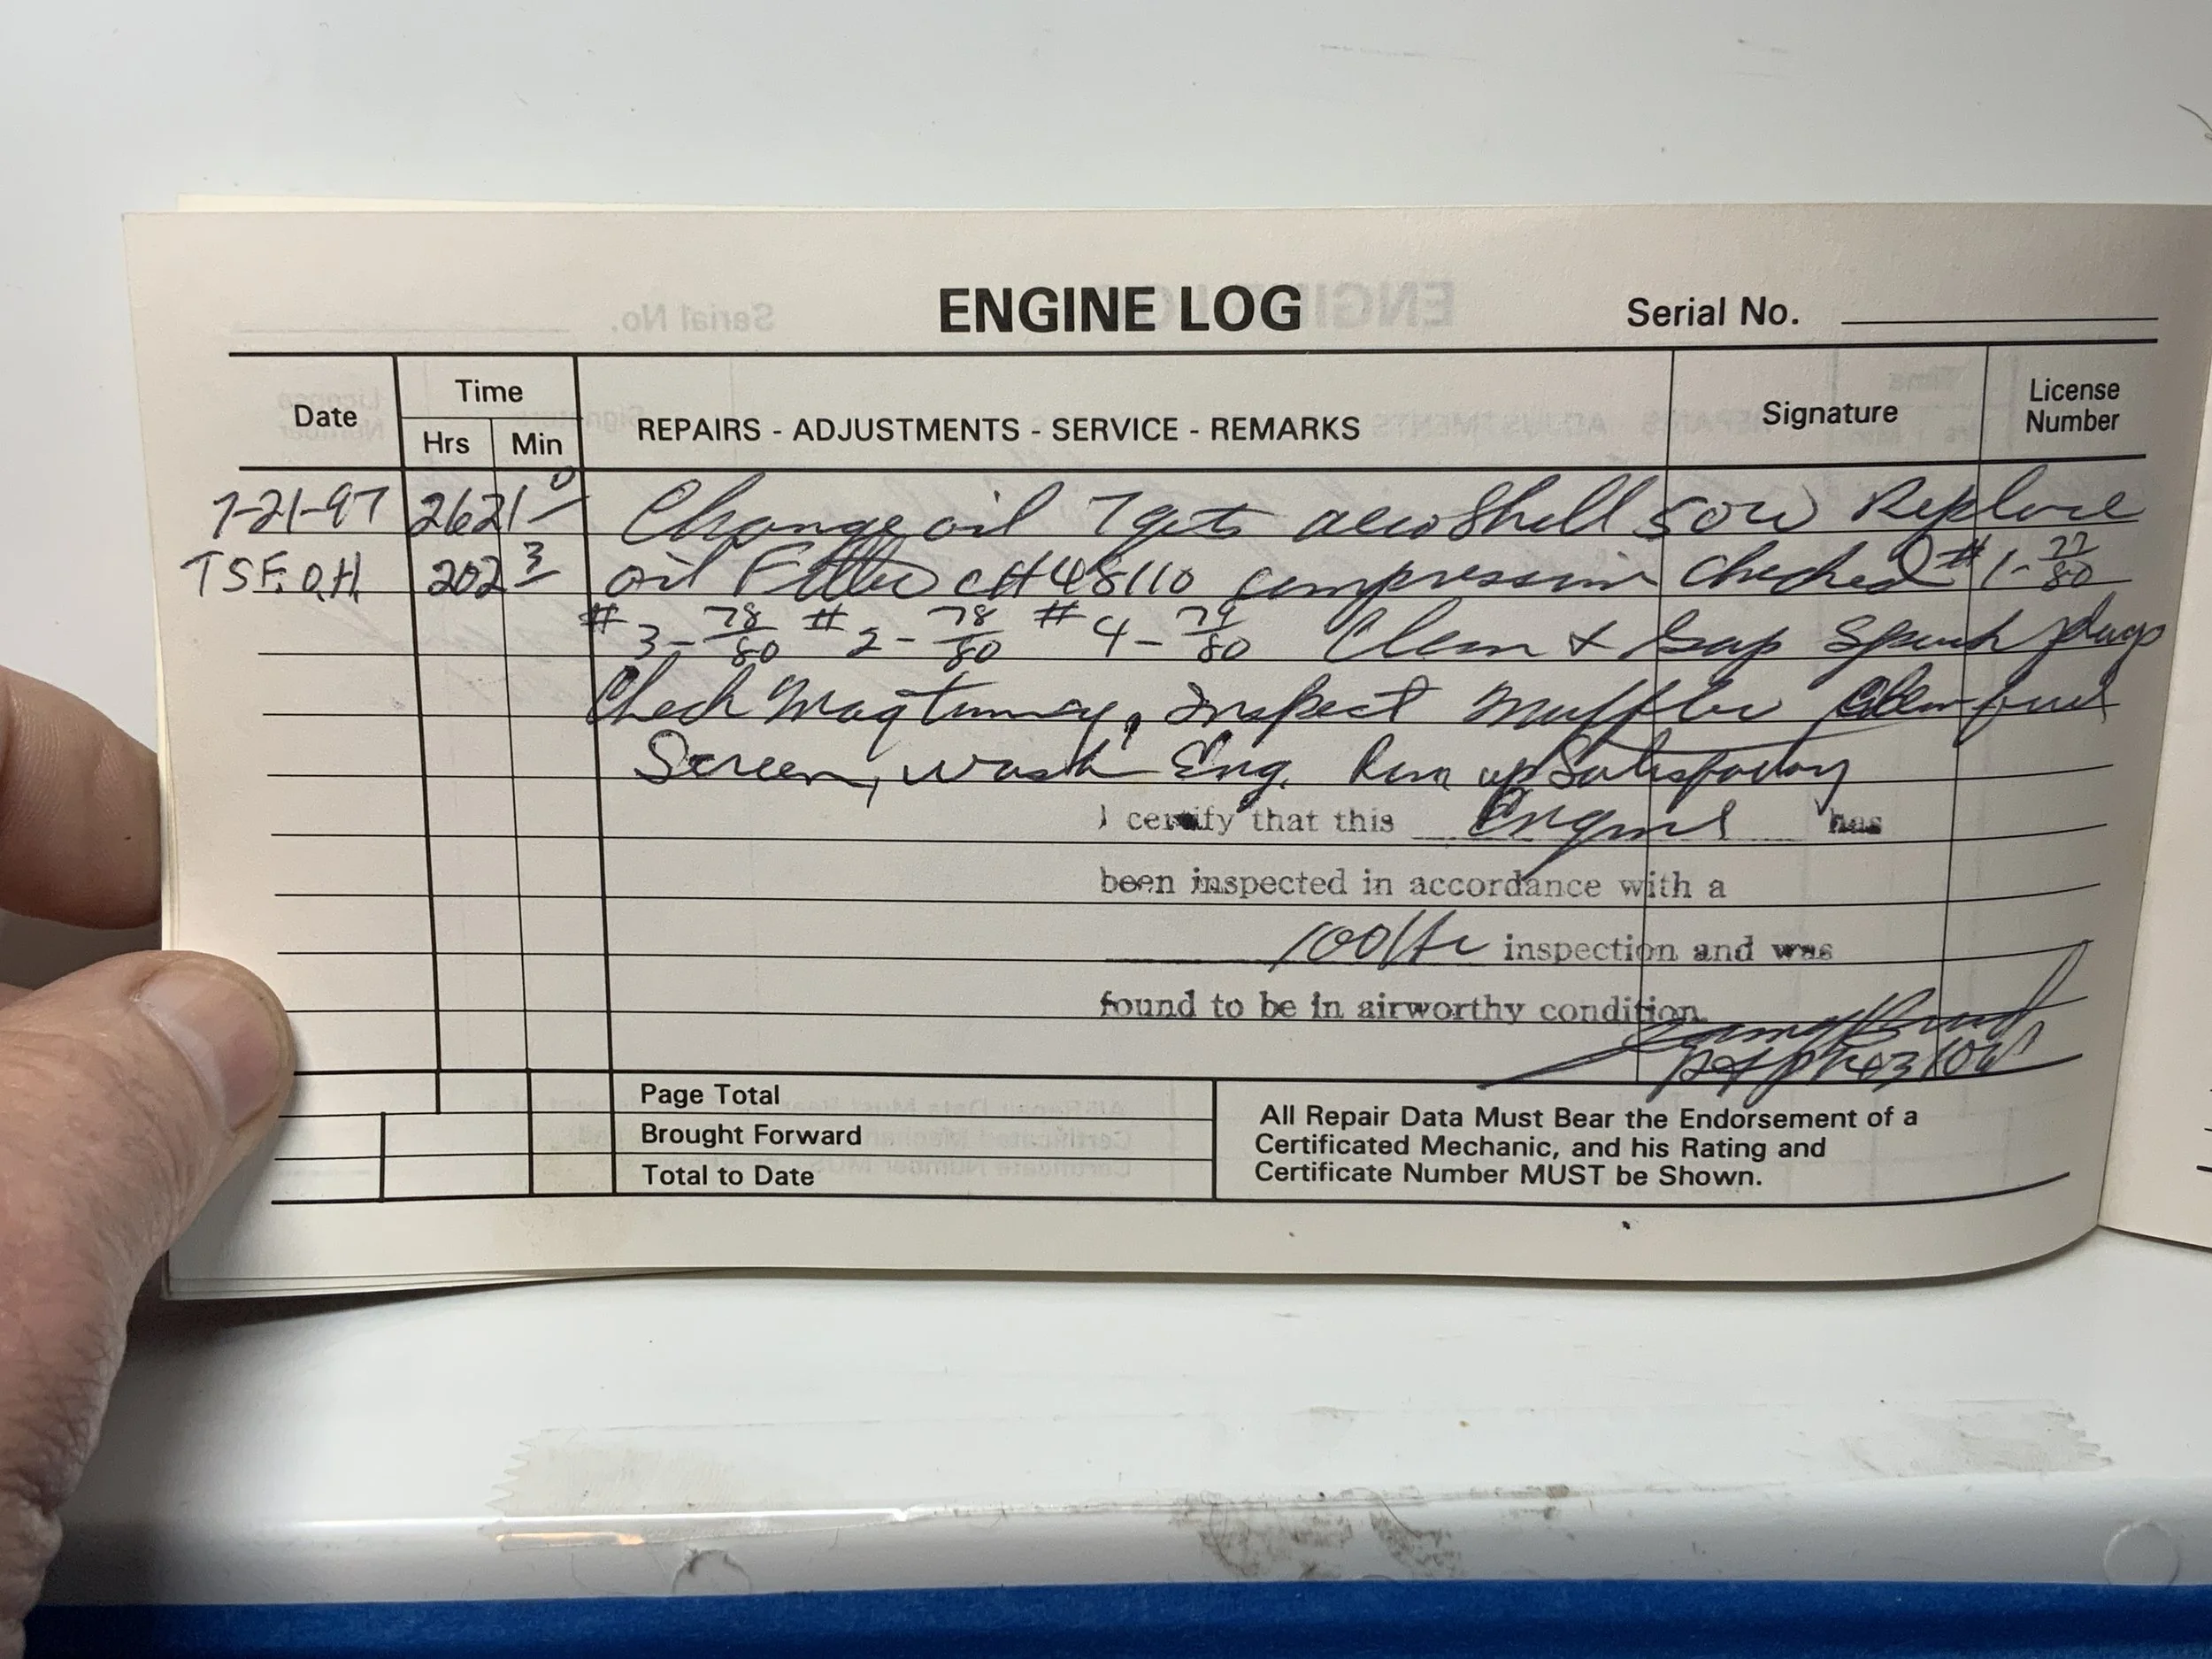 ENGINE LOG Serial No.
Date Time Hrs Min REPAIRS - ADJUSTMENTS - SERVICE - REMARKS Signature License Number
7-21-97 2621 0 Change oil 7 qts aeroshell 50W Replace
T.S.F.O.H. 202 3 oil Filter CH48110 compression checked #1-77/80
#3-78/80 #2-78/80 #4-79/80 Clean & Gap Spark plugs
Check Mag timing, Inspect Muffler Clean fuel
Screen, wash Eng. Run up Satisfactory
I certify that this Engine has
been inspected in accordance with a
100 Hr inspection and was
found to be in airworthy condition.
Page Total
Brought Forward
Total to Date
All Repair Data Must Bear the Endorsement of a
Certificated Mechanic, and his Rating and
Certificate Number MUST be Shown.